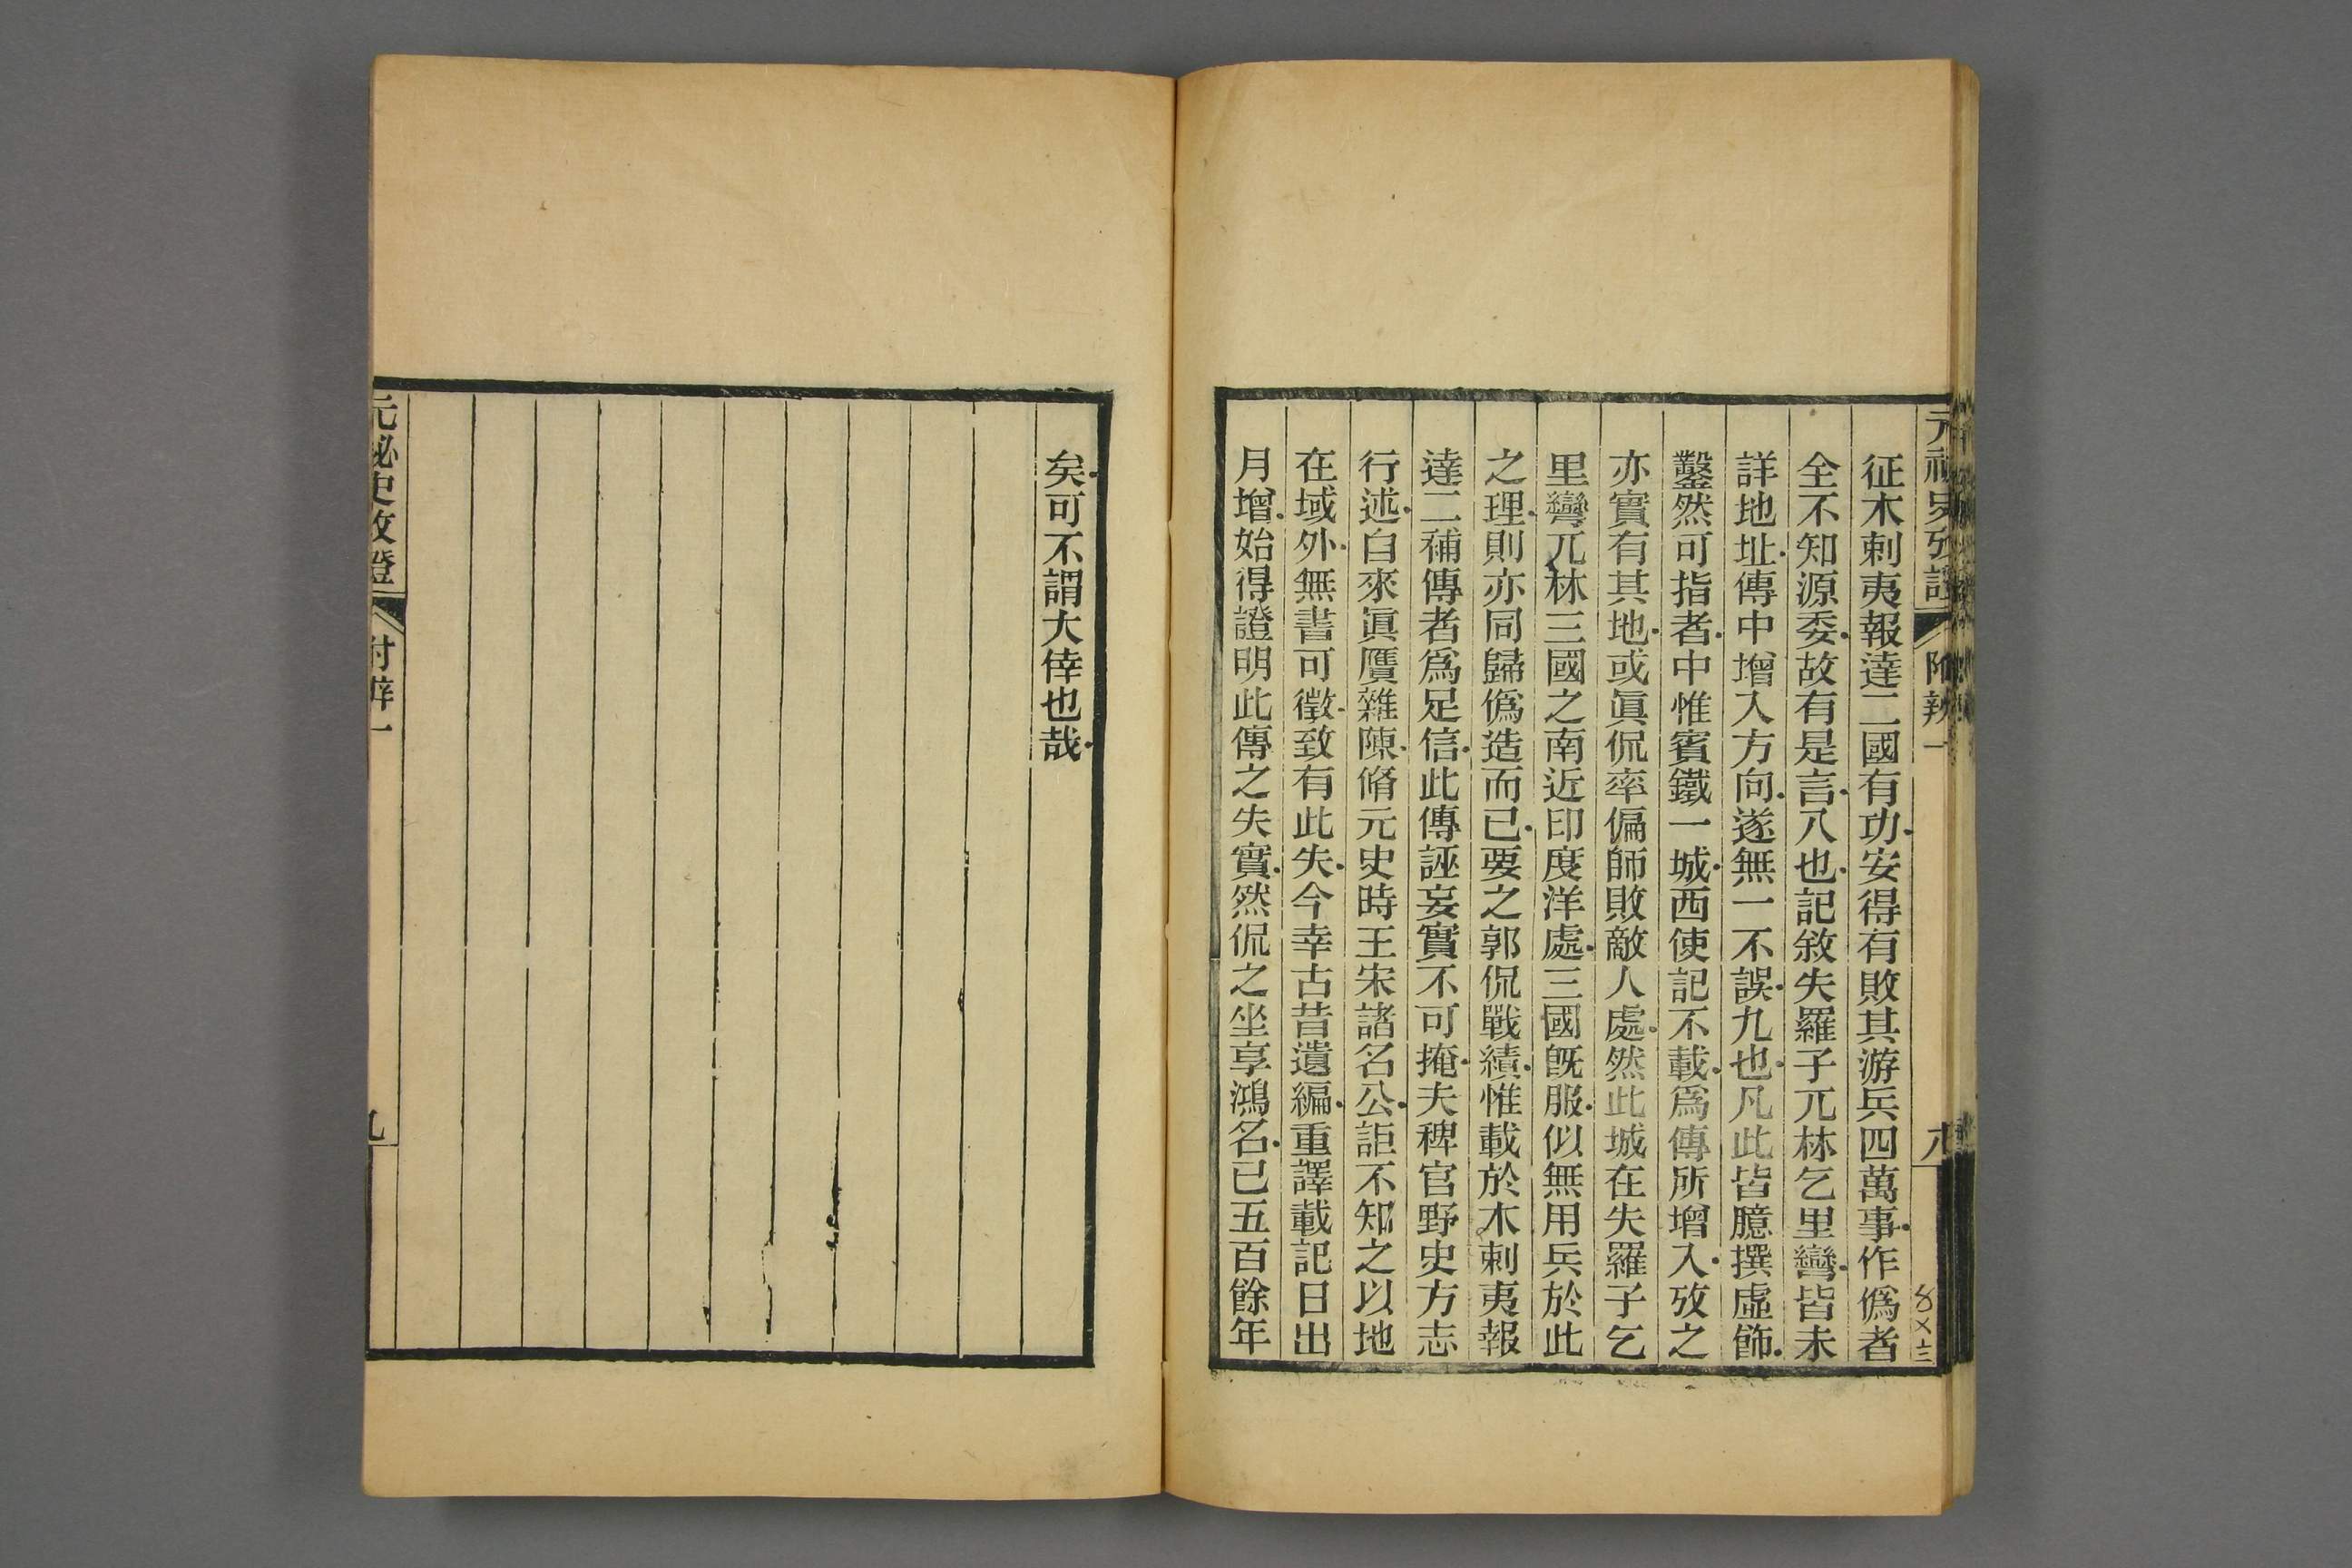 元祕史攷證 附辨一 八
征木剌夷報達二國有功安得有敗其游兵四萬事作僞者
全不知源委故有是言八也記敘失羅子兀林乞里彎皆未
詳地址傳中增入方向遂無一不誤九也凡此皆臆撰虛飾
鑿然可指者中惟賓鐵一城西使記不載爲傳所增入攷之
亦實有其地或眞侃率偏師敗敵人處然此城在失羅子乞
里彎兀林三國之南近印度洋處三國旣服似無用兵於此
之理則亦同歸僞造而已要之郭侃戰績惟載於木剌夷報
達二補傳者爲足信此傳誣妄實不可掩夫稗官野史方志
行述自來眞贋雜陳脩元史時王宋諸名公詎不知之以地
在域外無書可徵致有此失今幸古昔遺編重譯載記日出
月增始得證明此傳之失實然侃之坐享鴻名已五百餘年
矣可不謂大倖也哉
元祕史攷證 附辨一 九